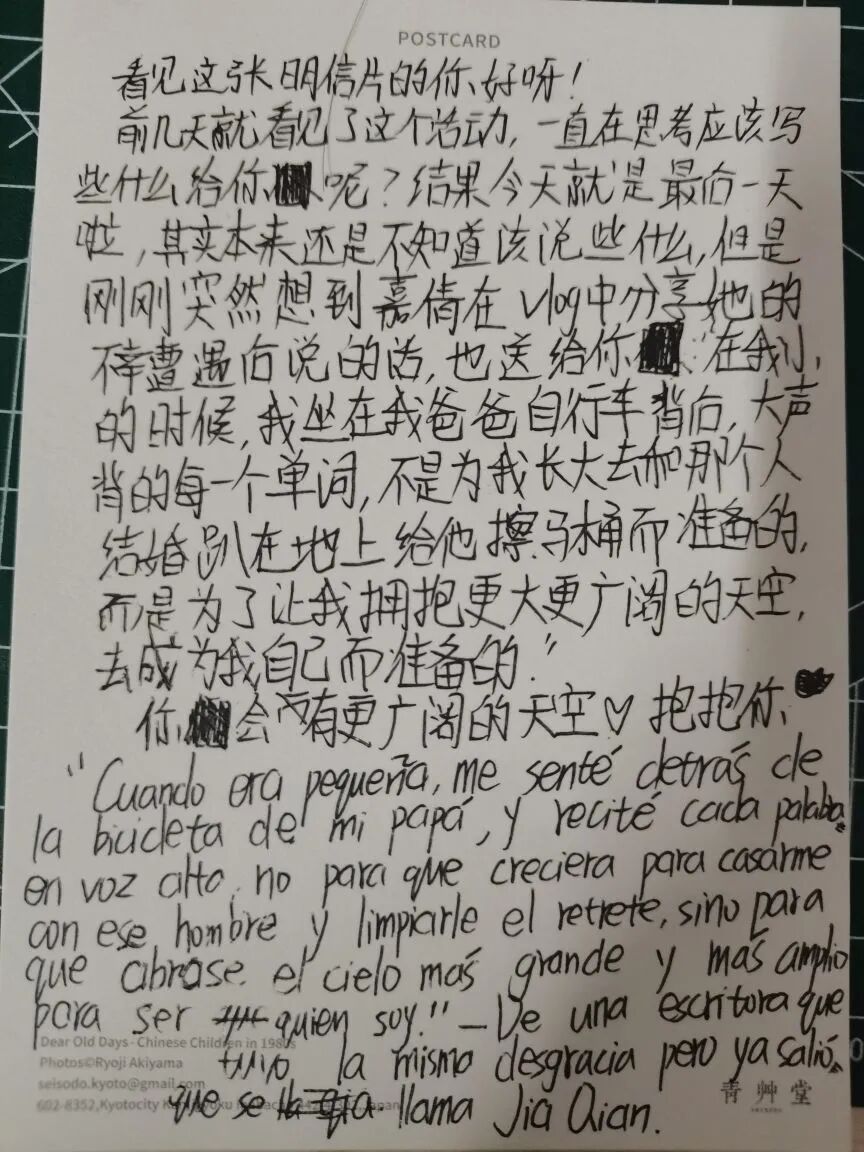 POSTCARD
看见这张明信片的你、好呀！
前几天就看见了这个活动，一直在思考应该写
些什么给你 呢？结果今天就是最后一天
啦，其实本来还是不知道该说些什么，但是
刚刚突然想到嘉倩在vlog中分享她的
不幸遭遇后说的话，也送给你 “在我小
的时候，我坐在我爸爸自行车背后，大声
背的每一个单词，不是为我长大去和那个人
结婚趴在地上给他擦马桶而准备的，
而是为了让我拥抱更大更广阔的天空，
去成为我自己而准备的.”
你 会有更广阔的天空♡ 抱抱你、
"Cuando era pequeña, me senté detrás de
la bicicleta de mi papá, y recité cada palabra
en voz alta, no para que creciera para casarme
con ese hombre y limpiarle el retrete, sino para
que abrase el cielo más grande y más amplio
para ser quien soy." — De una escritora que
Dear Old Days - Chinese Children in 1980s
Photos©Ryoji Akiyama
tuvo la misma desgracia pero ya salió,
seisodo.kyoto@gmail.com
602-8352,Kyotocity
que se llama Jia Qian.
青艸堂